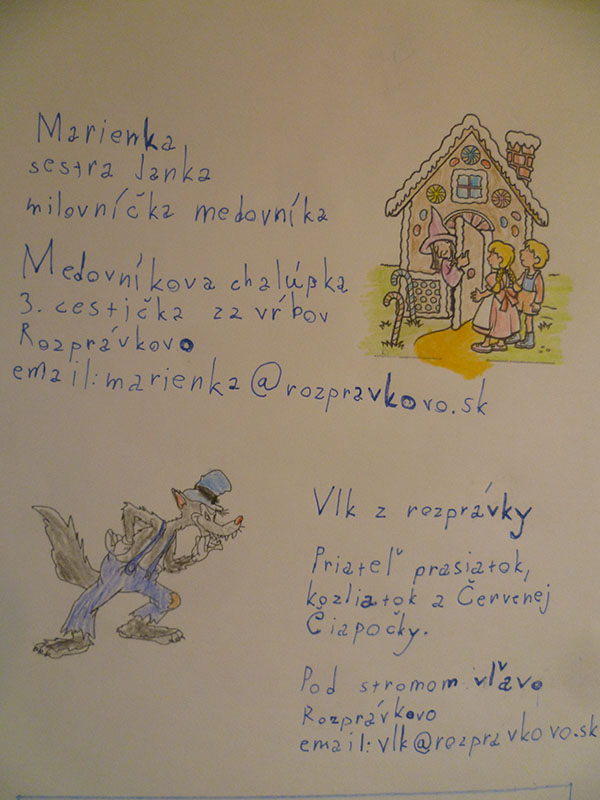 Marienka
sestra Janka
milovníčka medovníka
Medovníkova chalúpka
3. cestička za vŕbov
Rozprávkovo
email:marienka@rozpravkovo.sk
Vlk z rozprávky
Priateľ prasiatok,
kozliatok a Červenej
Čiapočky.
Pod stromom vľavo
Rozprávkovo
email:vlk@rozpravkovo.sk